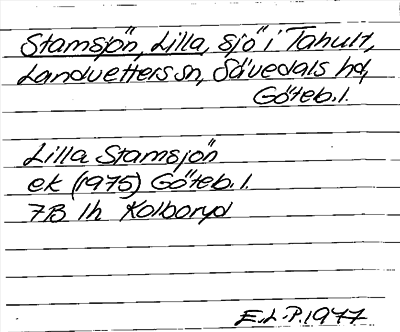 Stamsjön, Lilla, sjö i Tahult,
Landvetters sn, Sävedals hd,
Göteb. l.
Lilla Stamsjön
ek (1975) Göteb. l.
7B 1h Kolboryd
E.L-P. 1977